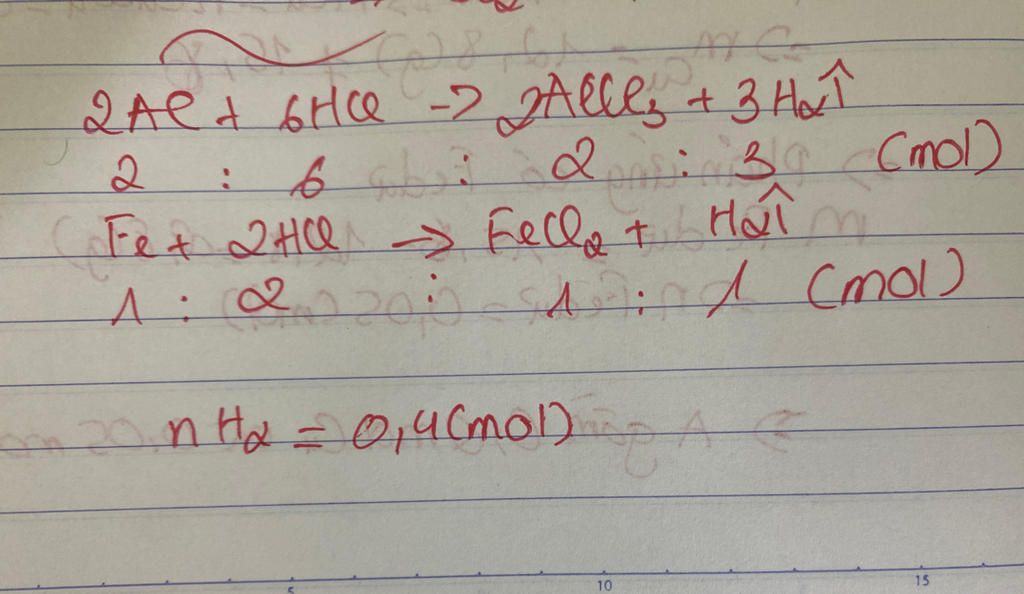 2Al + 6HCl -> 2AlCl3 + 3H2↑
2 : 6 : 2 : 3 (mol)
Fe + 2HCl -> FeCl2 + H2↑
1 : 2 : 1 : 1 (mol)
nH2 = 0,4(mol)
5 10 15